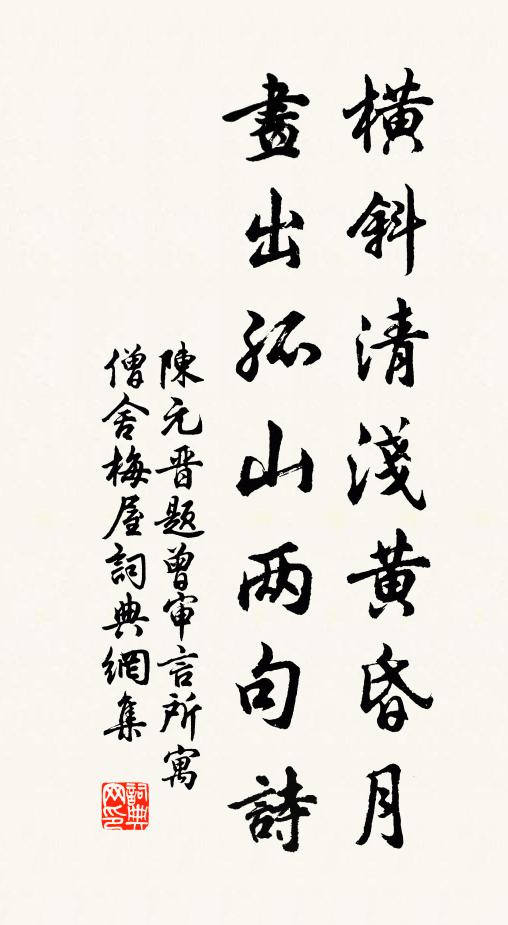 橫斜清淺黃昏月
畫出孤山兩句詩
陳元晋題曾审言所寓
僧舍梅屋詞典網集
詞典网印